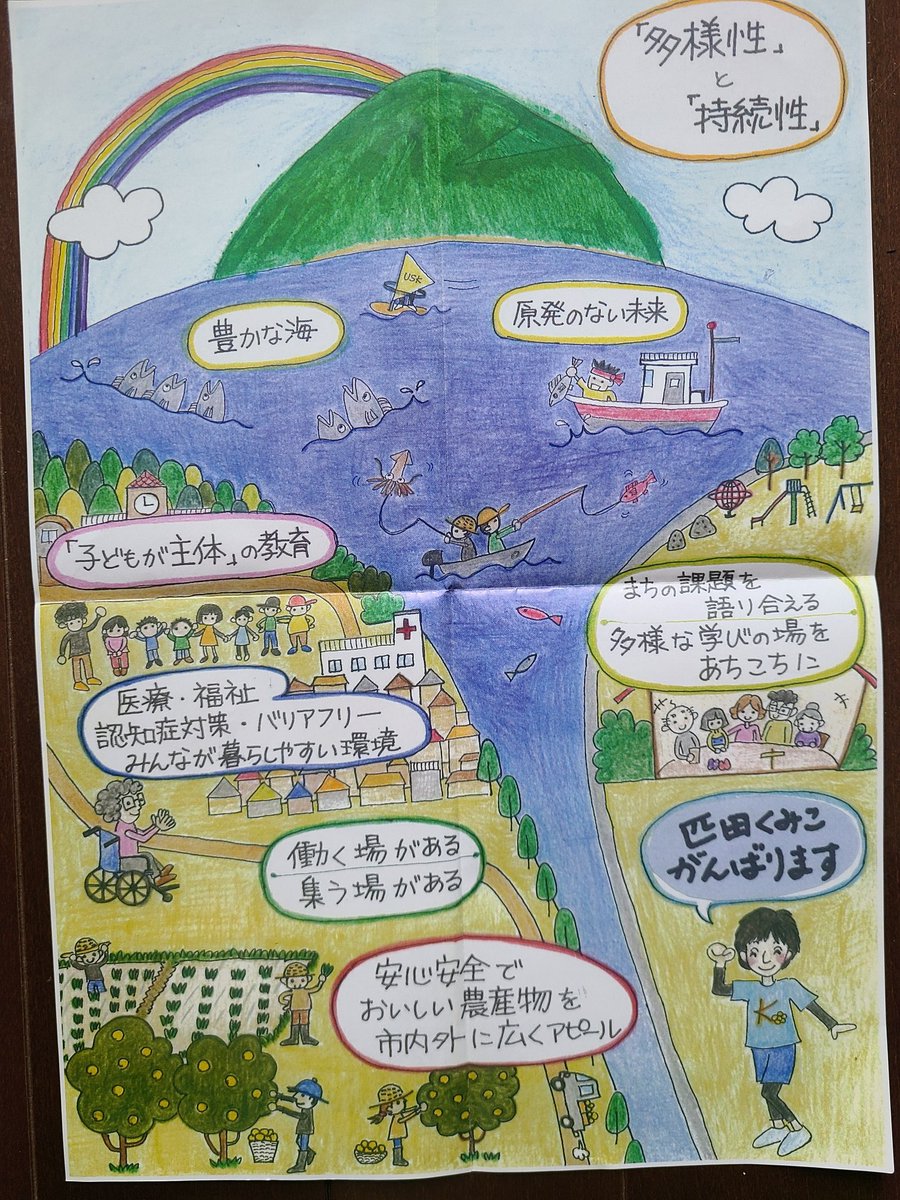 「多様性」
と
「持続性」
USK
豊かな海
原発のない未来
「子どもが主体」の教育
まちの課題を
語り合える
多様な学びの場を
あちこちに
医療・福祉
認知症対策・バリアフリー
みんなが暮らしやすい環境
働く場がある
集う場がある
匹田くみこ
がんばります
安心安全で
おいしい農産物を
市内外に広くアピール
K